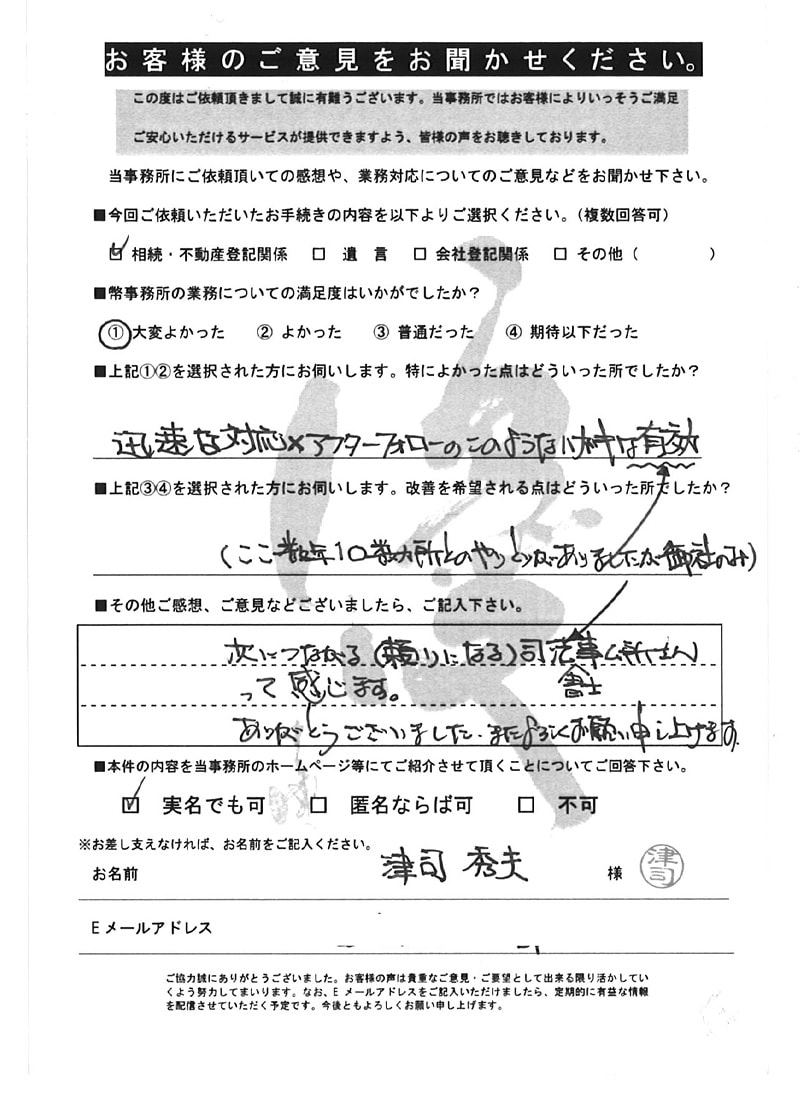 お客様のご意見をお聞かせください。
この度はご依頼頂きまして誠に有難うございます。当事務所ではお客様によりいっそうご満足
ご安心いただけるサービスが提供できますよう、皆様の声をお聴きしております。
当事務所にご依頼頂いての感想や、業務対応についてのご意見などをお聞かせ下さい。
■今回ご依頼いただいたお手続きの内容を以下よりご選択ください。（複数回答可）
☑ 相続・不動産登記関係 □ 遺 言 □ 会社登記関係 □ その他（ ）
■幣事務所の業務についての満足度はいかがでしたか？
①大変よかった ② よかった ③ 普通だった ④ 期待以下だった
■上記①②を選択された方にお伺いします。特によかった点はどういった所でしたか？
迅速な対応×アフターフォローのこのような は有効
■上記③④を選択された方にお伺いします。改善を希望される点はどういった所でしたか？
（ここ数年10数カ所とのやりとりがありましたが御社のみ）
■その他ご感想、ご意見などございましたら、ご記入下さい。
次につながる（頼りになる）司法書士事ム所さん
って感じます。
ありがとうございました。またよろしくお願い申し上げます。
■本件の内容を当事務所のホームページ等にてご紹介させて頂くことについてご回答下さい。
☑ 実名でも可 □ 匿名ならば可 □ 不可
※お差し支えなければ、お名前をご記入ください。
お名前 津司 秀夫 様 津司
Ｅメールアドレス
ご協力誠にありがとうございました。お客様の声は貴重なご意見・ご要望として出来る限り活かしてい
くよう努力してまいります。なお、Ｅメールアドレスをご記入いただけましたら、定期的に有益な情報
を配信させていただく予定です。今後ともよろしくお願い申し上げます。